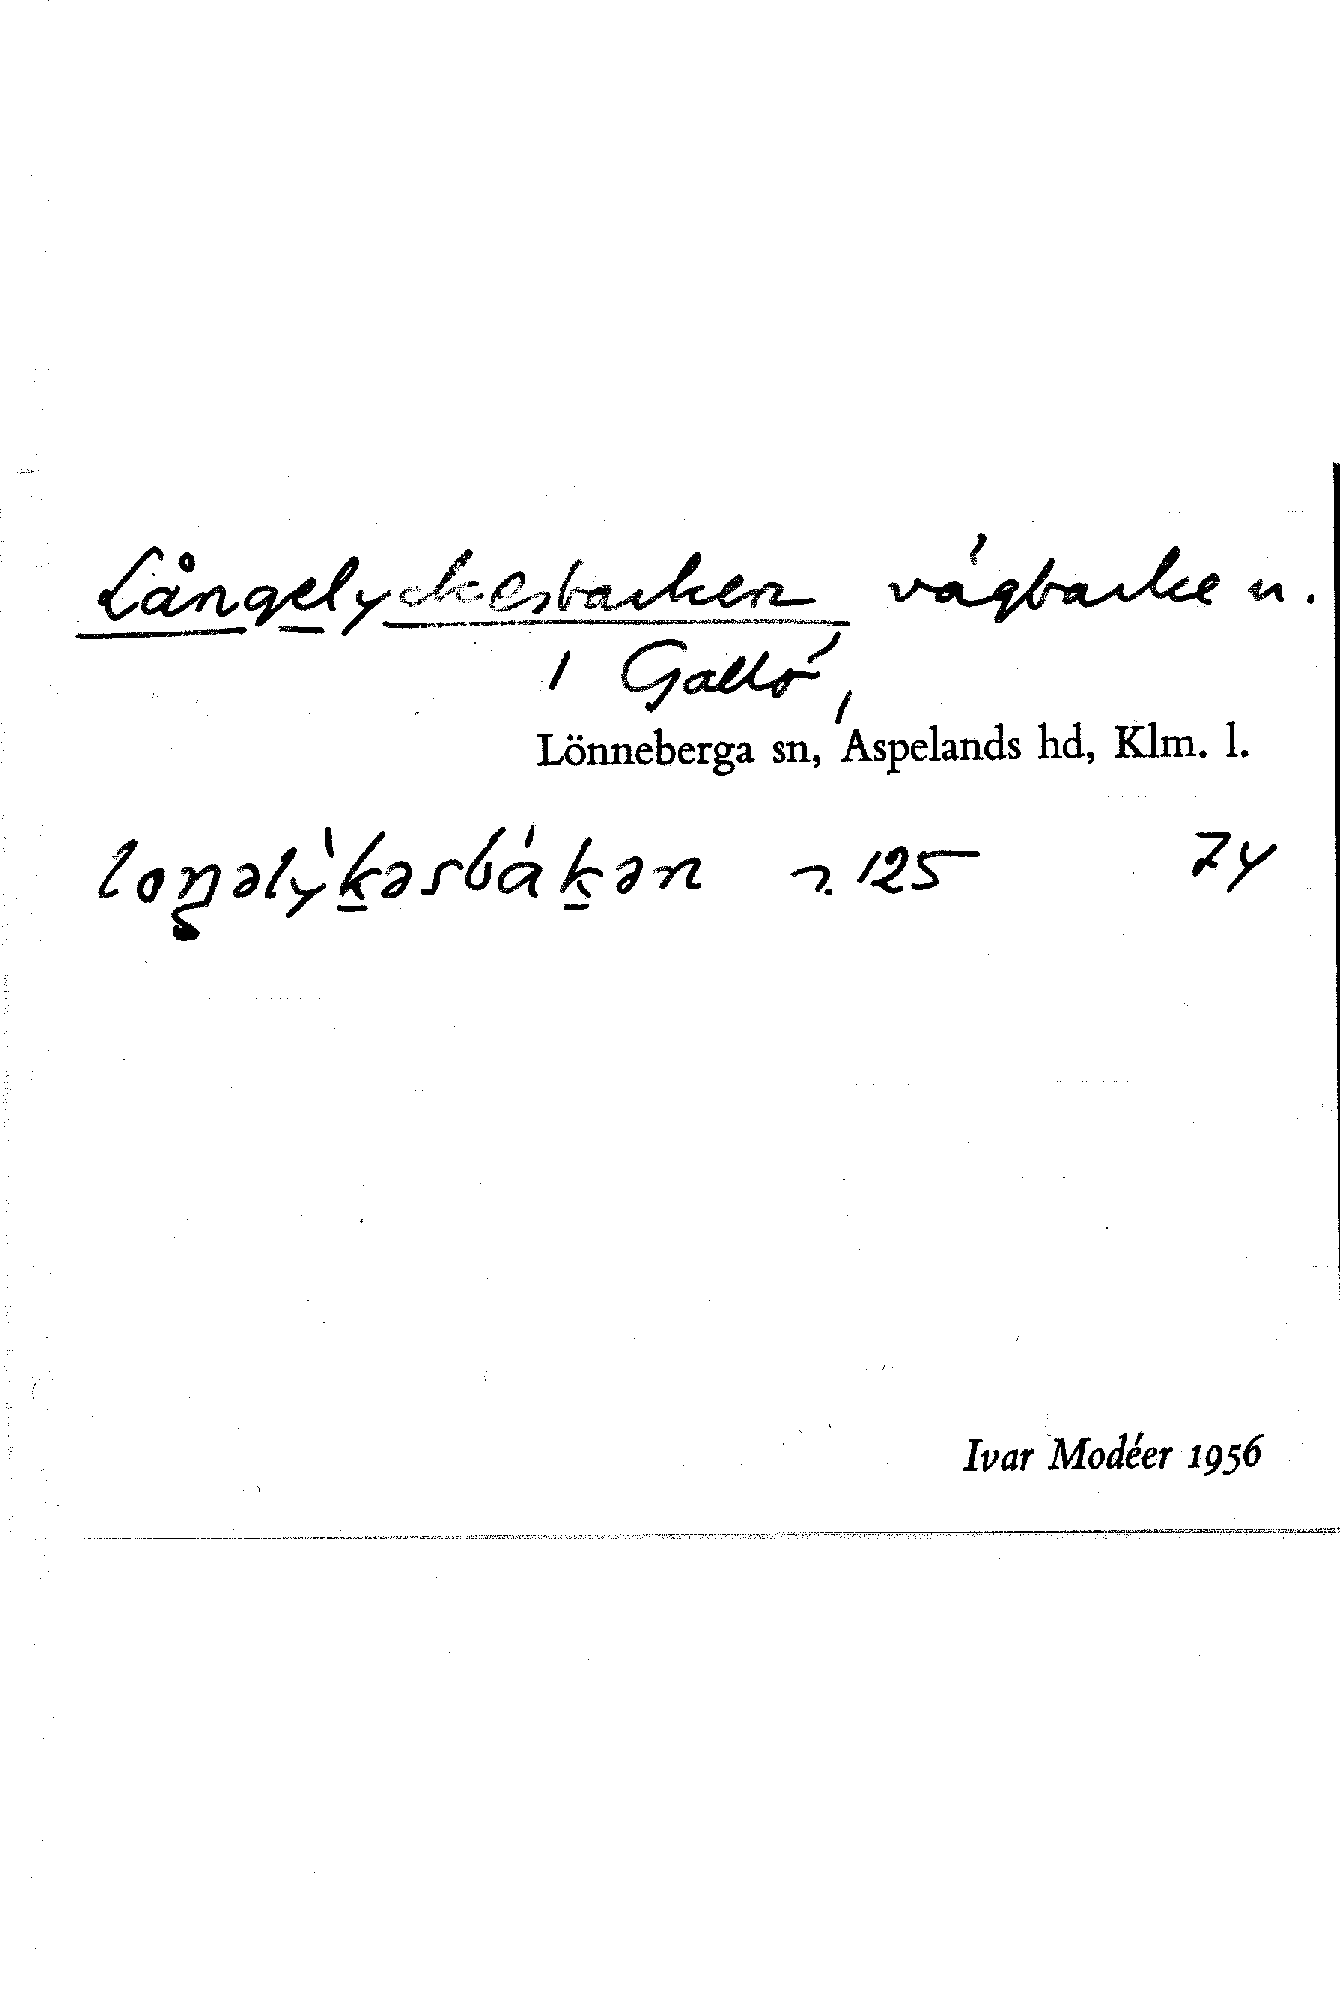 Långelyckesbacken vägbacke n.
i Gallö,
Lönneberga sn, Aspelands hd, Klm. l.
loŋəlỳkəsbákən n. 125 74
Ivar Modéer 1956